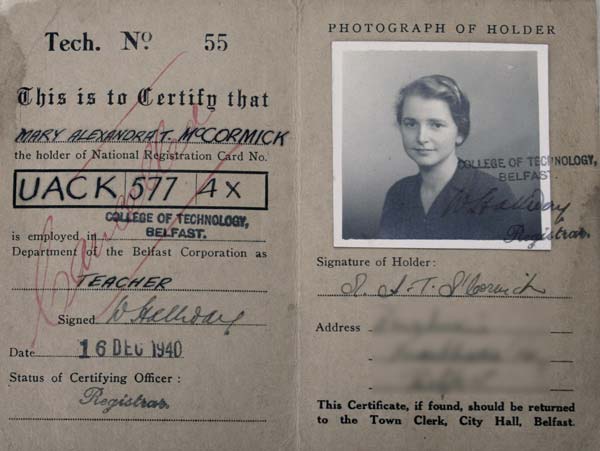 Tech. Nº 55
This is to Certify that
MARY ALEXANDRA T. McCORMICK
the holder of National Registration Card No.
UACK 577 4X
COLLEGE OF TECHNOLOGY,
is employed in BELFAST.
Department of the Belfast Corporation as
TEACHER
Signed W Halliday
Date 16 DEC 1940
Status of Certifying Officer :
Registrar.
Cancelled
PHOTOGRAPH OF HOLDER
COLLEGE OF TECHNOLOGY,
BELFAST.
W Halliday
Registrar.
Signature of Holder :
M. A. T. McCormick
Address
This Certificate, if found, should be returned
to the Town Clerk, City Hall, Belfast.